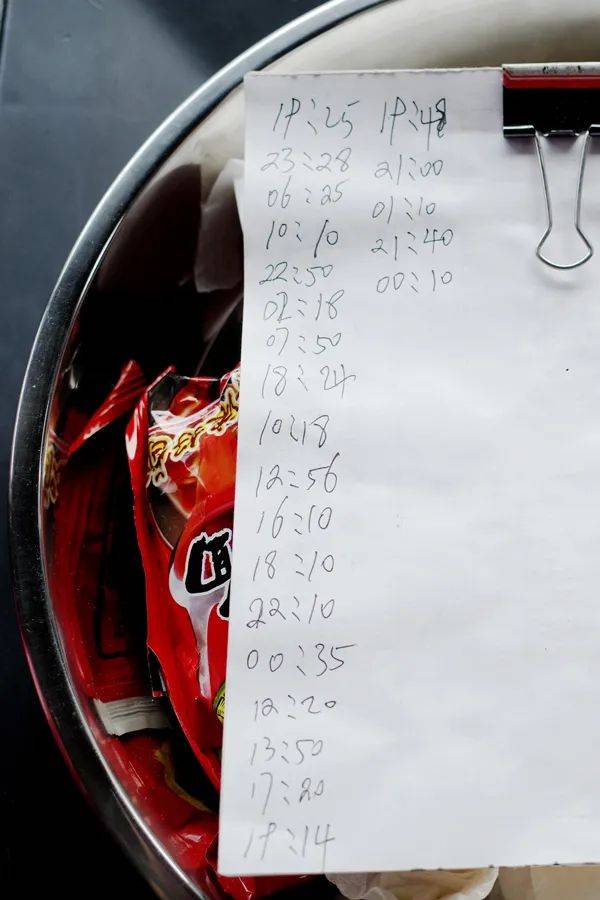 19:25
23:28
06:25
10:10
22:50
02:18
07:50
18:24
10:18
12:56
16:10
18:10
22:10
00:35
12:20
13:50
17:20
19:14
19:48
21:00
01:10
21:40
00:10